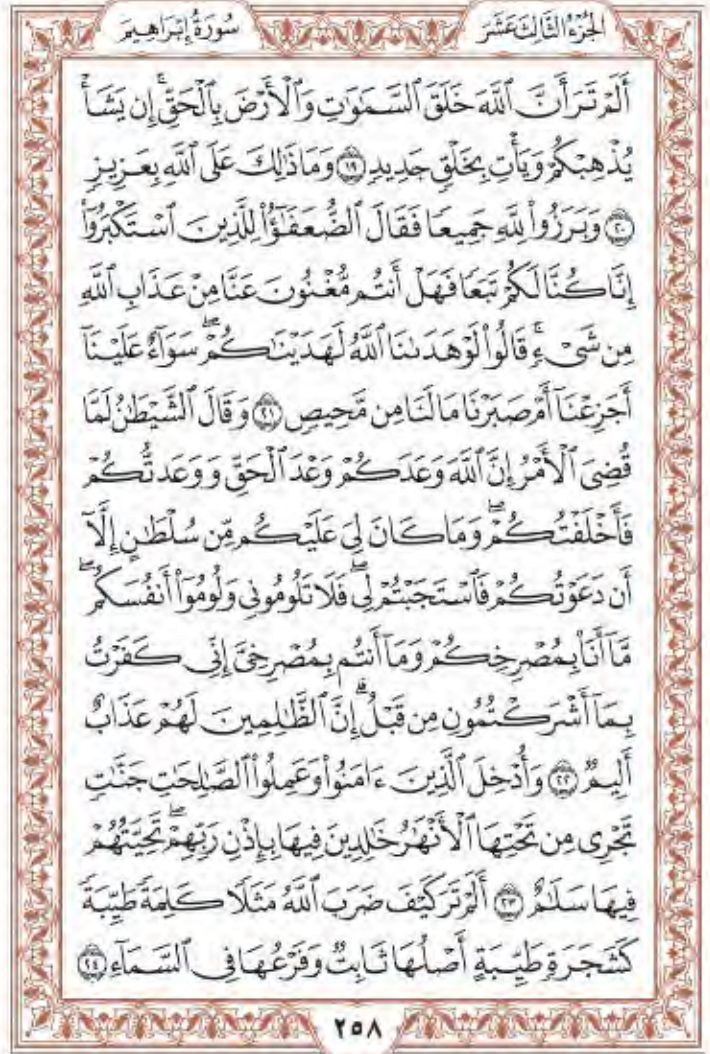 الجُزْءُ الثَّالِثَ عَشَرَ
سُورَةُ إِبْرَاهِيمَ
أَلَمْ تَرَ أَنَّ ٱللَّهَ خَلَقَ ٱلسَّمَٰوَٰتِ وَٱلْأَرْضَ بِٱلْحَقِّۚ إِن يَشَأْ
يُذْهِبْكُمْ وَيَأْتِ بِخَلْقٍ جَدِيدٍ ۝١٩ وَمَا ذَٰلِكَ عَلَى ٱللَّهِ بِعَزِيزٍ
۝٢٠ وَبَرَزُوا۟ لِلَّهِ جَمِيعًا فَقَالَ ٱلضُّعَفَٰٓؤُا۟ لِلَّذِينَ ٱسْتَكْبَرُوٓا۟
إِنَّا كُنَّا لَكُمْ تَبَعًا فَهَلْ أَنتُم مُّغْنُونَ عَنَّا مِنْ عَذَابِ ٱللَّهِ
مِن شَىْءٍۚ قَالُوا۟ لَوْ هَدَىٰنَا ٱللَّهُ لَهَدَيْنَٰكُمْۖ سَوَآءٌ عَلَيْنَآ
أَجَزِعْنَآ أَمْ صَبَرْنَا مَا لَنَا مِن مَّحِيصٍ ۝٢١ وَقَالَ ٱلشَّيْطَٰنُ لَمَّا
قُضِىَ ٱلْأَمْرُ إِنَّ ٱللَّهَ وَعَدَكُمْ وَعْدَ ٱلْحَقِّ وَوَعَدتُّكُمْ
فَأَخْلَفْتُكُمْۖ وَمَا كَانَ لِىَ عَلَيْكُم مِّن سُلْطَٰنٍ إِلَّآ
أَن دَعَوْتُكُمْ فَٱسْتَجَبْتُمْ لِىۖ فَلَا تَلُومُونِى وَلُومُوٓا۟ أَنفُسَكُمۖ
مَّآ أَنَا۠ بِمُصْرِخِكُمْ وَمَآ أَنتُم بِمُصْرِخِىَّۖ إِنِّى كَفَرْتُ
بِمَآ أَشْرَكْتُمُونِ مِن قَبْلُۗ إِنَّ ٱلظَّٰلِمِينَ لَهُمْ عَذَابٌ
أَلِيمٌ ۝٢٢ وَأُدْخِلَ ٱلَّذِينَ ءَامَنُوا۟ وَعَمِلُوا۟ ٱلصَّٰلِحَٰتِ جَنَّٰتٍ
تَجْرِى مِن تَحْتِهَا ٱلْأَنْهَٰرُ خَٰلِدِينَ فِيهَا بِإِذْنِ رَبِّهِمْۖ تَحِيَّتُهُمْ
فِيهَا سَلَٰمٌ ۝٢٣ أَلَمْ تَرَ كَيْفَ ضَرَبَ ٱللَّهُ مَثَلًا كَلِمَةً طَيِّبَةً
كَشَجَرَةٍ طَيِّبَةٍ أَصْلُهَا ثَابِتٌ وَفَرْعُهَا فِى ٱلسَّمَآءِ ۝٢٤
٢٥٨